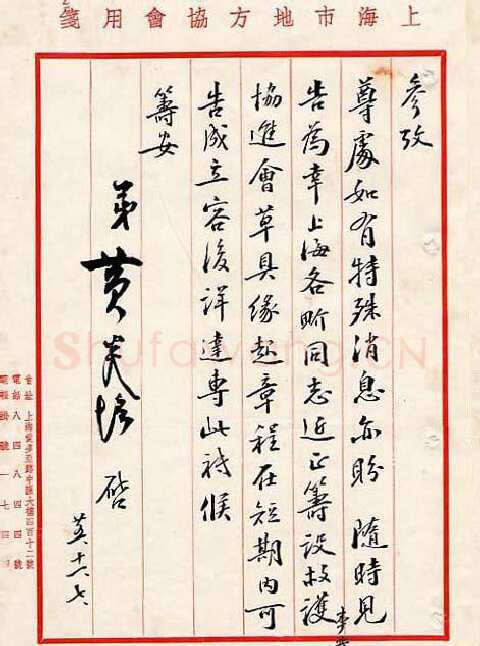 箋用會協方地市海上
參攷
尊處如有特殊消息亦盼 隨時見
告為幸上海各界同志近正籌設救護
協進會草具緣起章程在短期內可
告成立容後詳達專此祗候
籌安
弟黃炎培 啓
廿五、十一、七
會址 上海愛多亞路中匯大樓四百十二號
電話 八四八四四號
電報掛號 一七四
Shufawang.CN